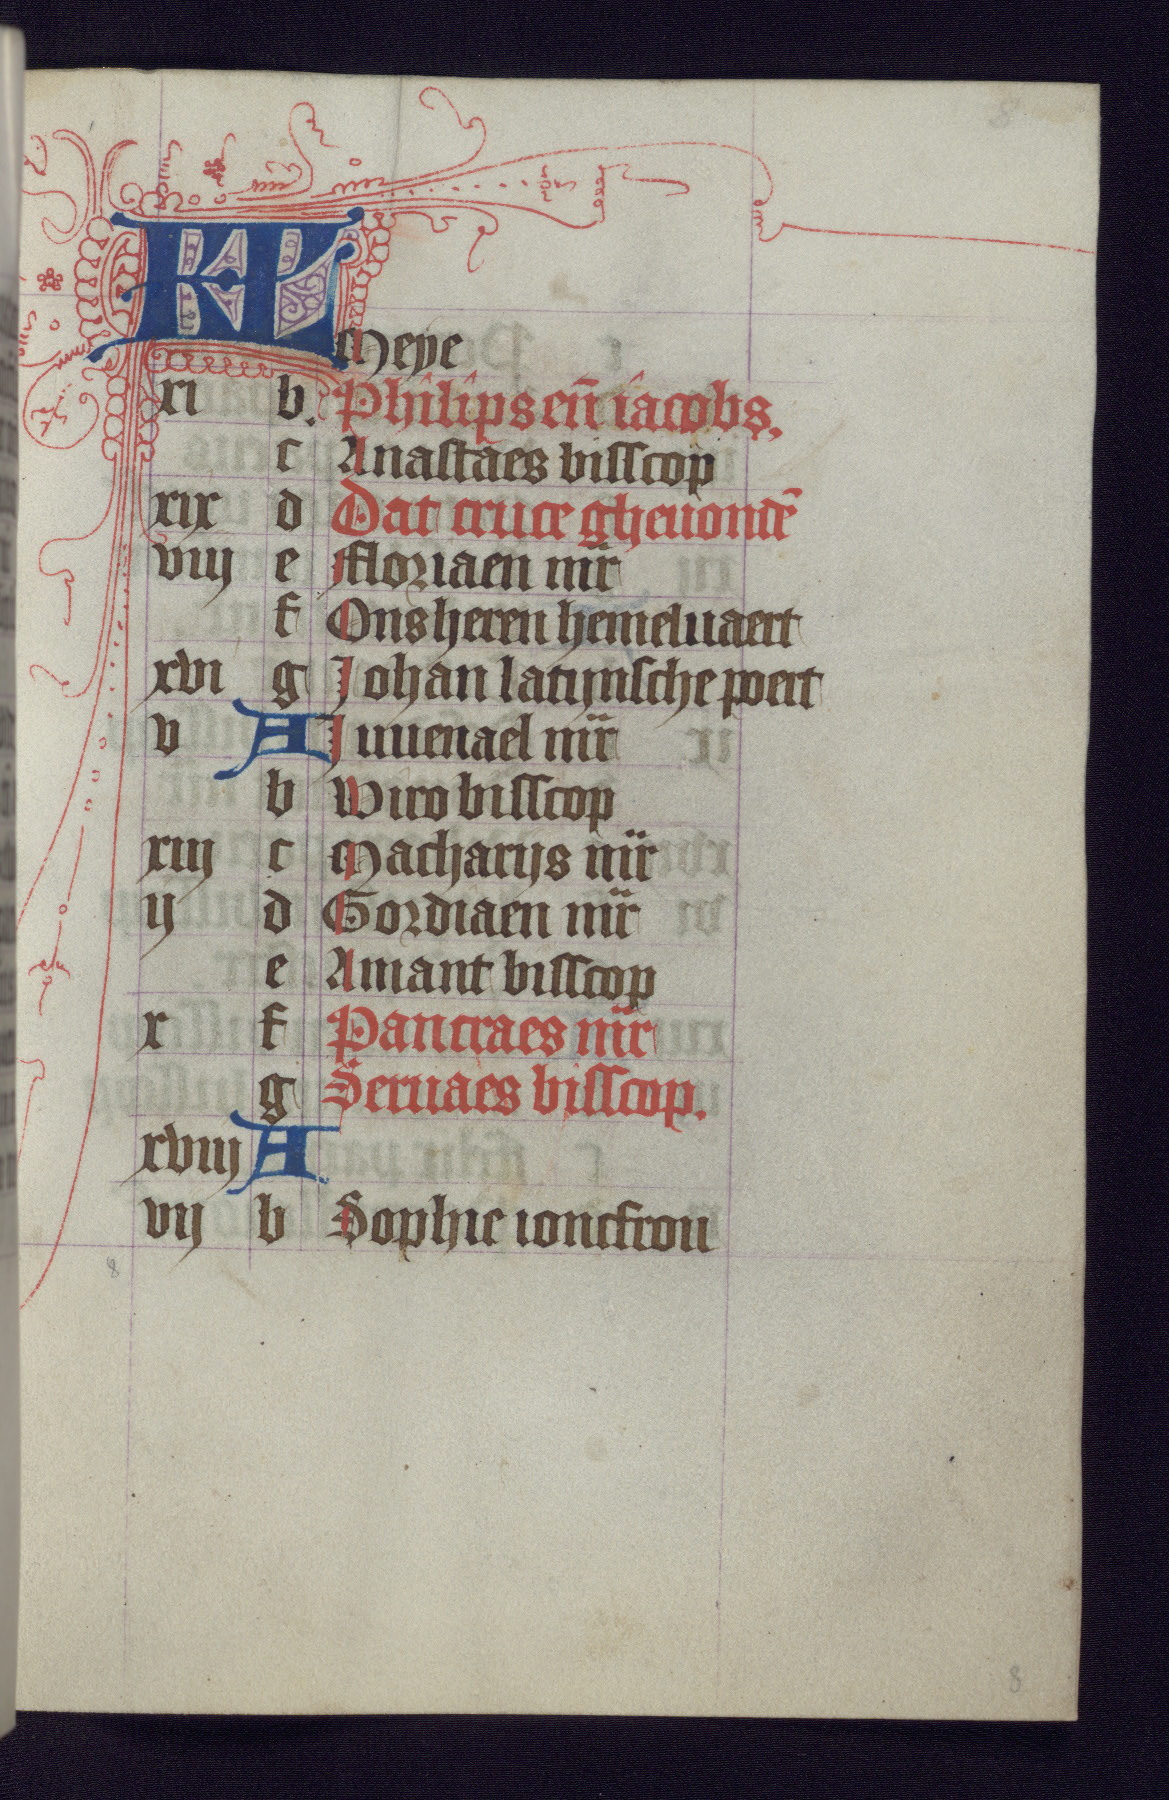 8
KL Meye
xi b. Philips en̄ iacobs.
c Anastaes bisscop
xix d Dat cruce gheuondē
viij e Floriaen mr̄
f Ons heren hemeluaert
xvi g Johan latijnsche poert
v A Juuenael mr̄
b Wiro bisscop
xiij c Macharijs mr̄
ij d Gordiaen mr̄
e Amant bisscop
x f Pancraes mr̄
g Seruaes bisscop.
xviij A
vij b Sophie ioncfrou
8
8